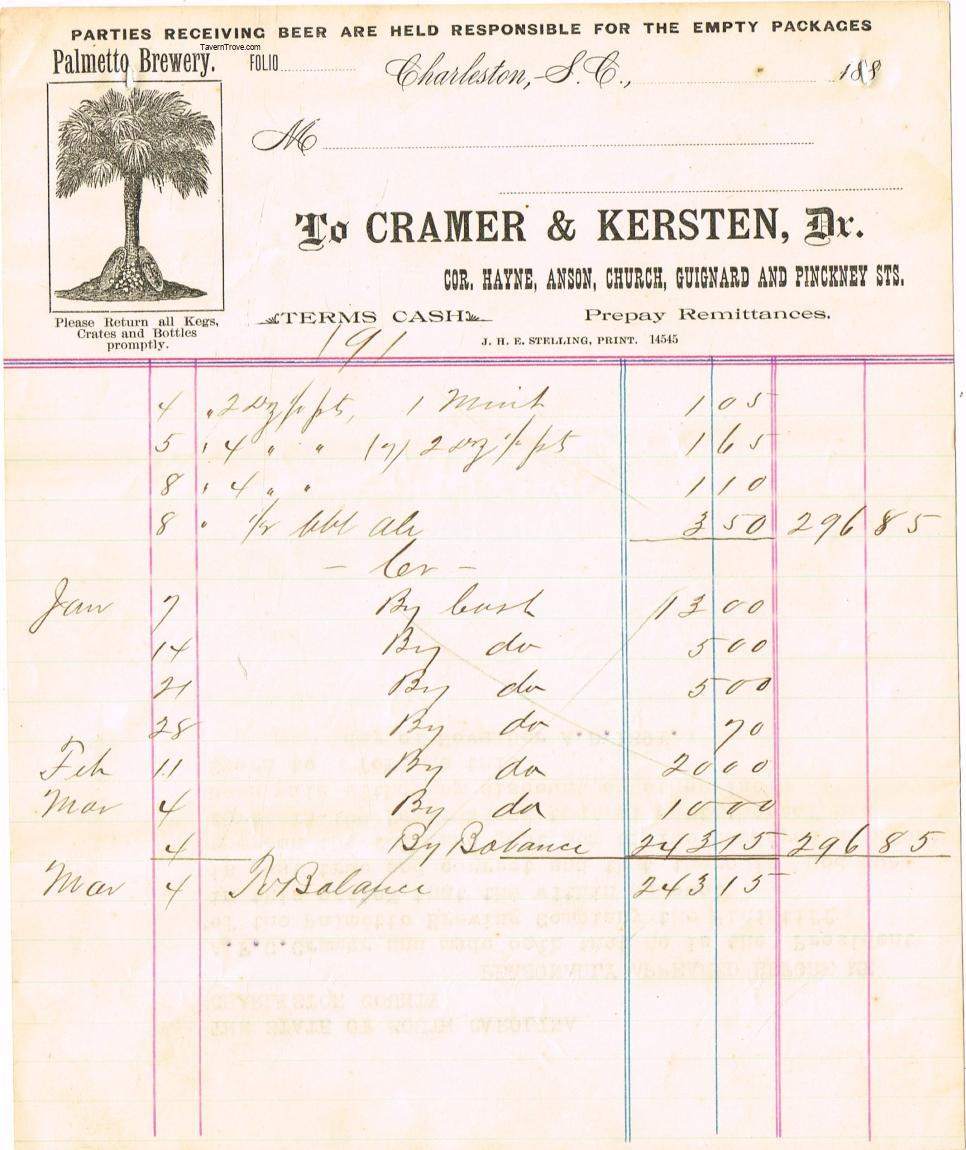 PARTIES RECEIVING BEER ARE HELD RESPONSIBLE FOR THE EMPTY PACKAGES
TavernTrove.com
Palmetto Brewery. FOLIO Charleston, S. C., 188
M
To CRAMER & KERSTEN, Dr.
COR. HAYNE, ANSON, CHURCH, GUIGNARD AND PINCKNEY STS.
TERMS CASH Prepay Remittances.
Please Return all Kegs,
Crates and Bottles
promptly.
J. H. E. STELLING, PRINT. 14545
191
4 " 2 doz pts, 1 105
5 " 4 " " 2 doz pts 165
8 " 4 " " 110
8 " 1/2 bbl ale 3 50 296 85
- Cr -
Jan 7 By Cash 13 00
14 By do 5 00
21 By do 5 00
28 By do 70
Feb 11 By do 20 00
Mar 4 By do 10 00
4 By Balance 243 15 296 85
Mar 4 To Balance 243 15
PERSONALLY APPEARED BEFORE ME
CHARLESTON COUNTY
THE STATE OF SOUTH CAROLINA